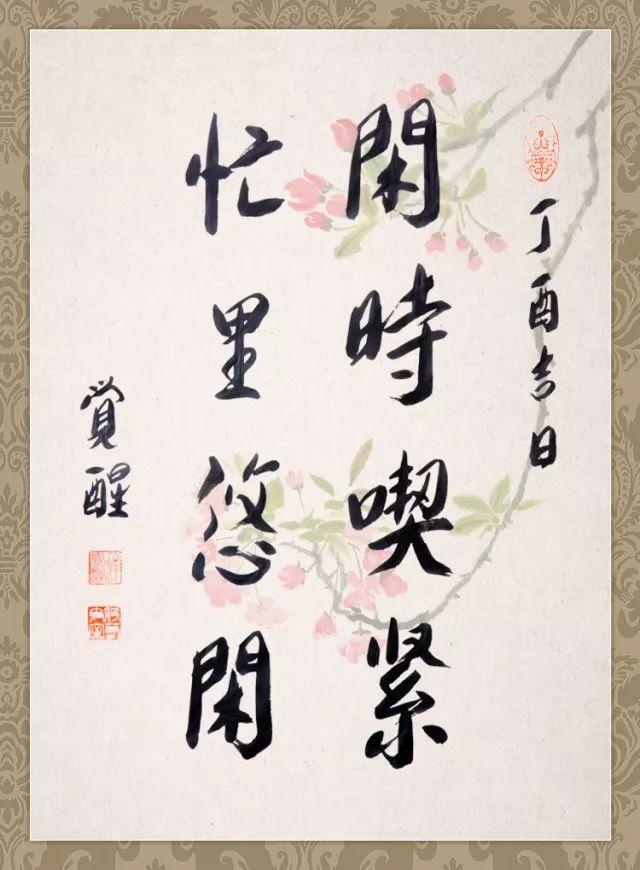 丁酉吉日
閑時喫紧
忙里悠閑
覺醒